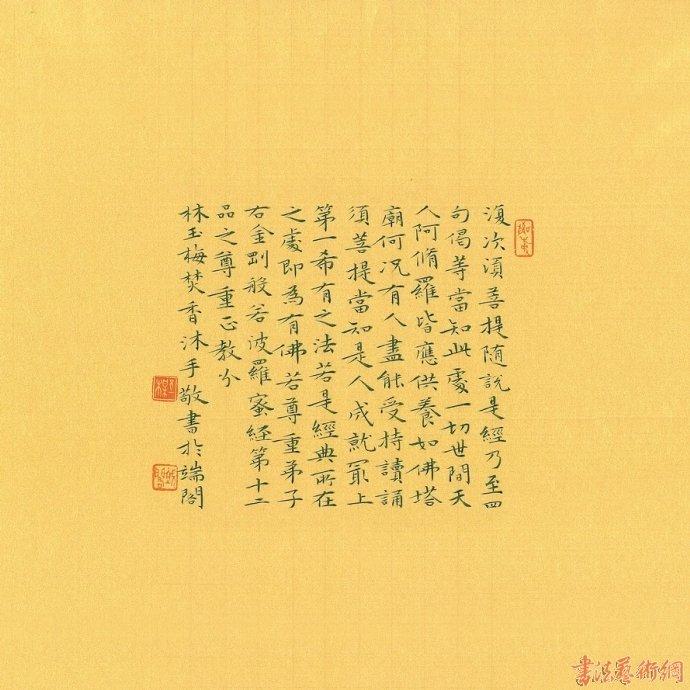 復次須菩提隨說是經乃至四
句偈等當知此處一切世間天
人阿脩羅皆應供養如佛塔
廟何况有人盡能受持讀誦
須菩提當知是人成就冣上
第一希有之法若是經典所在
之處即為有佛若尊重弟子
右金剛般若波羅蜜經第十二
品之尊重正教分
林玉梅焚香沐手敬書於端閣
書法藝術網